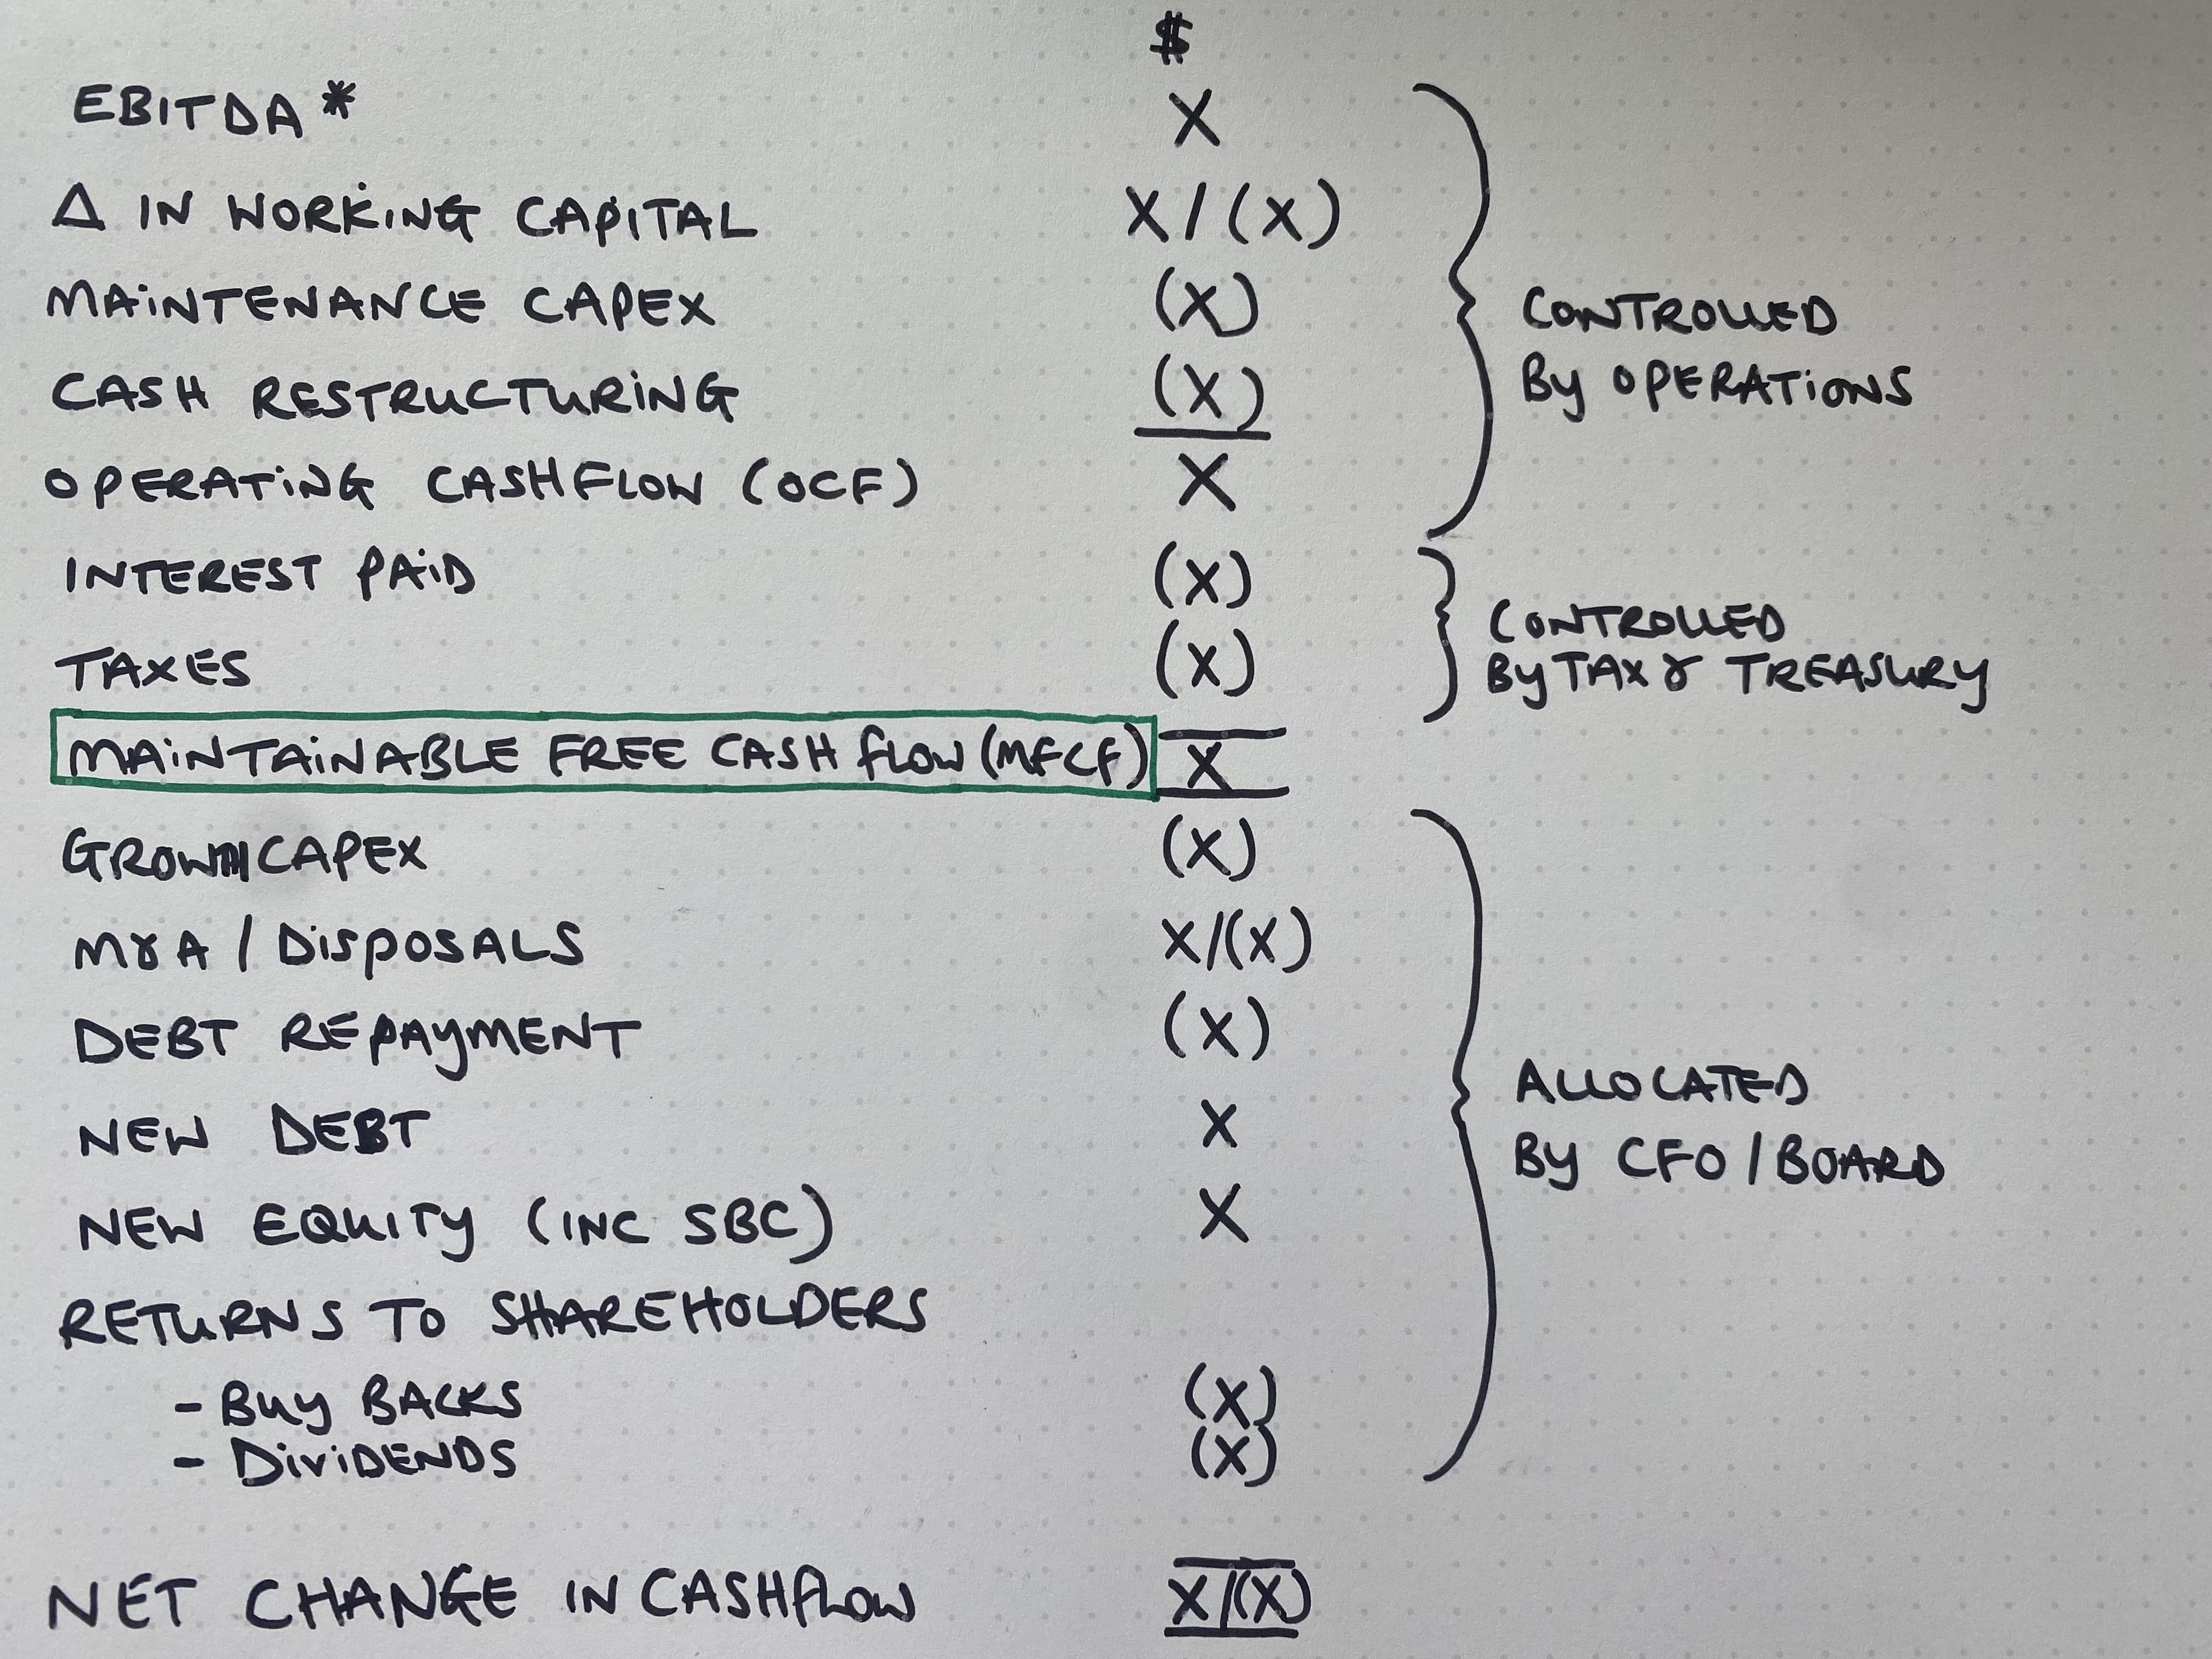 $
EBITDA* X
Δ IN WORKING CAPITAL X/(X)
MAINTENANCE CAPEX (X)
CASH RESTRUCTURING (X)
CONTROLLED
BY OPERATIONS
OPERATING CASHFLOW (OCF) X
INTEREST PAID (X)
TAXES (X)
CONTROLLED
BY TAX & TREASURY
MAINTAINABLE FREE CASH FLOW (MFCF) X
GROWTH CAPEX (X)
M&A / DISPOSALS X/(X)
DEBT REPAYMENT (X)
NEW DEBT X
ALLOCATED
BY CFO / BOARD
NEW EQUITY (INC SBC) X
RETURNS TO SHAREHOLDERS
- BUY BACKS (X)
- DIVIDENDS (X)
NET CHANGE IN CASHFLOW X/(X)